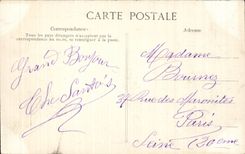 CARTE POSTALE
Correspondance :
Tous les pays étrangers n'acceptent pas la
correspondance au recto, se renseigner à la poste.
Grand Bonjour
Madame
37 Rue des Maronites
Paris
Seine 20eme